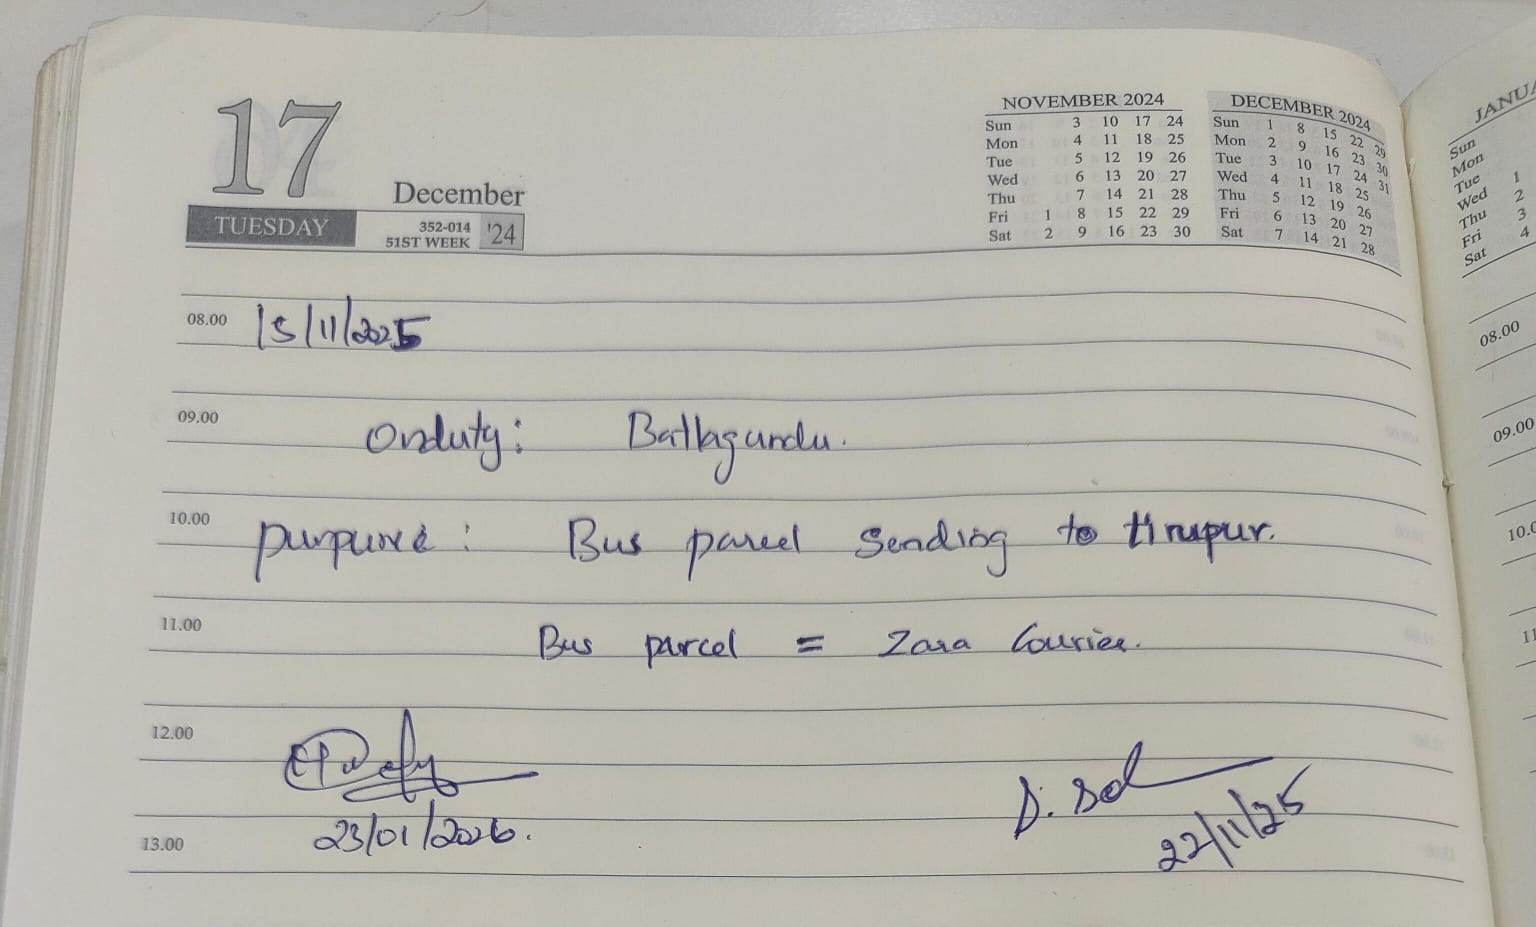 17
December
TUESDAY
352-014
51ST WEEK
'24
NOVEMBER 2024
Sun 3 10 17 24
Mon 4 11 18 25
Tue 5 12 19 26
Wed 6 13 20 27
Thu 7 14 21 28
Fri 1 8 15 22 29
Sat 2 9 16 23 30
DECEMBER 2024
Sun 1 8 15 22 29
Mon 2 9 16 23 30
Tue 3 10 17 24 31
Wed 4 11 18 25
Thu 5 12 19 26
Fri 6 13 20 27
Sat 7 14 21 28
08.00 15/11/2025
09.00 Onduty: Batlagundu.
10.00 purpure : Bus parcel Sending to tirupur.
11.00 Bus parcel = Zara Courier.
12.00
23/01/2026.
22/11/25
13.00
Sun
Mon
Tue
Wed 1
Thu 2
Fri 3
Sat 4
08.00
09.00